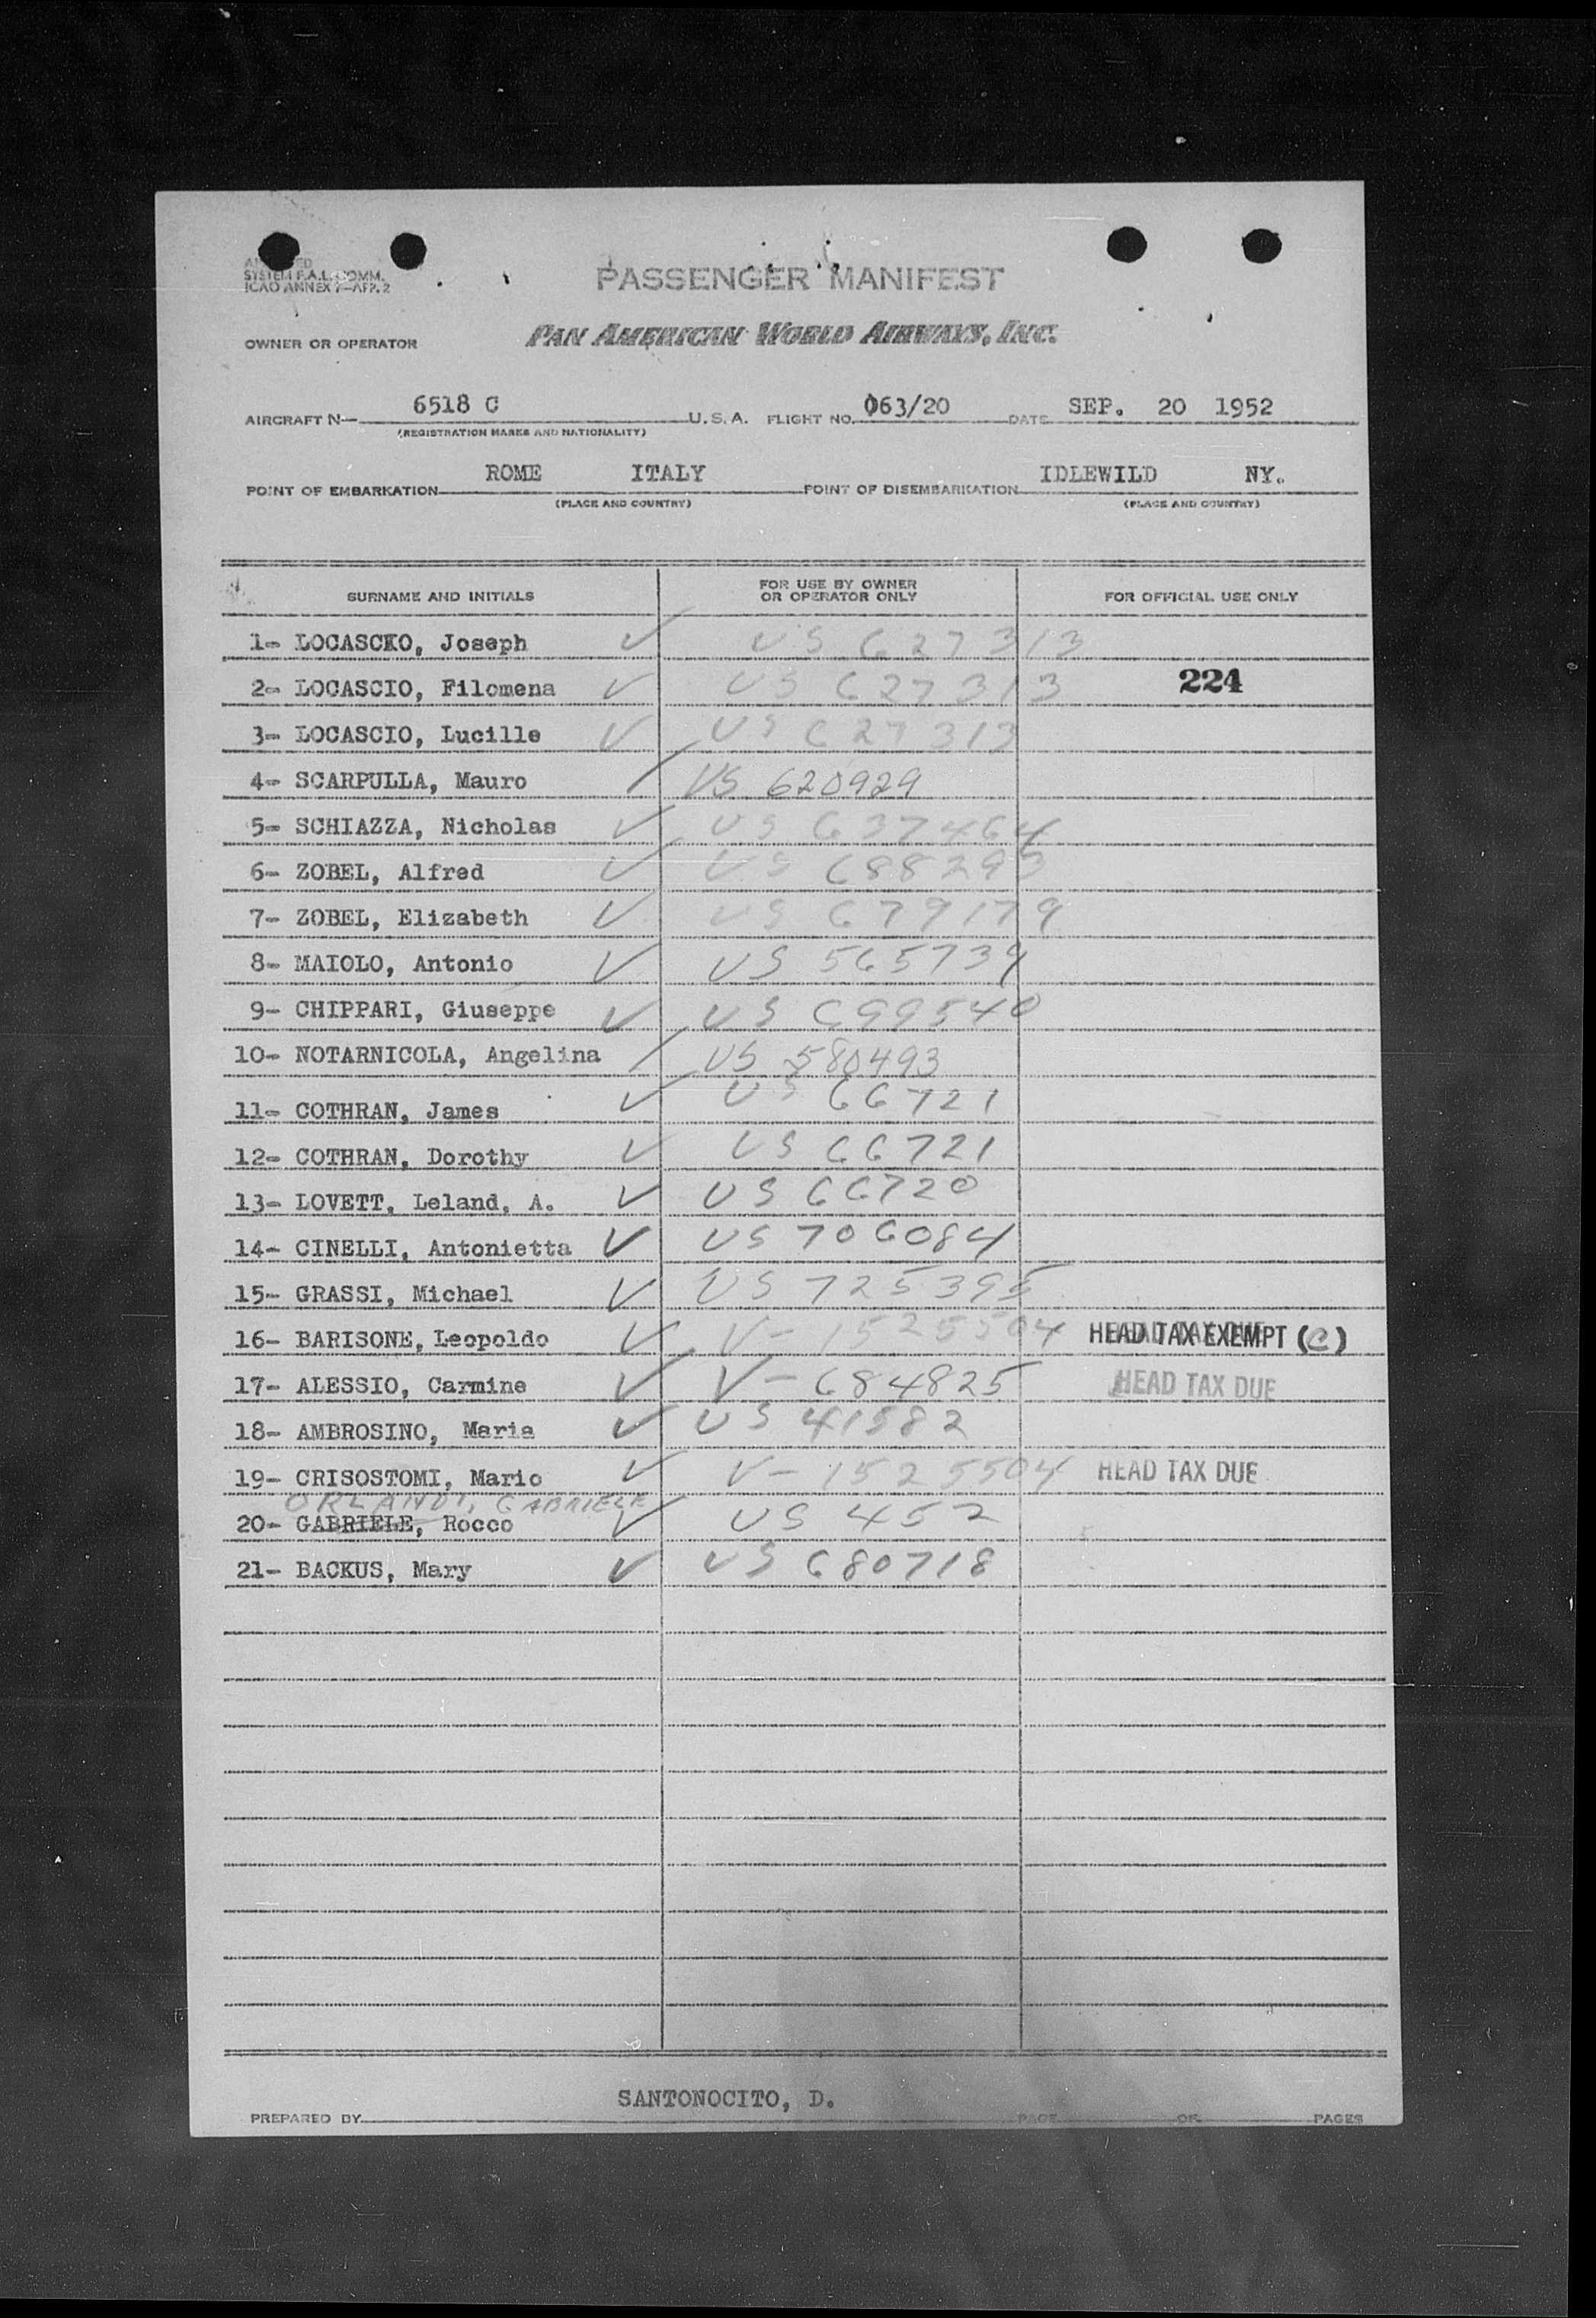 SYSTEM F.A.L. COMM.
ICAO ANNEX 9-APP. 2
PASSENGER MANIFEST
OWNER OR OPERATOR PAN AMERICAN WORLD AIRWAYS, INC.
AIRCRAFT N— 6518 C U.S.A. FLIGHT NO. 063/20 DATE SEP. 20 1952
(REGISTRATION MARKS AND NATIONALITY)
POINT OF EMBARKATION ROME ITALY POINT OF DISEMBARKATION IDLEWILD NY.
(PLACE AND COUNTRY) (PLACE AND COUNTRY)
SURNAME AND INITIALS FOR USE BY OWNER OR OPERATOR ONLY FOR OFFICIAL USE ONLY
1- LOCASCKO, Joseph ✓ US 627313
2- LOCASCIO, Filomena ✓ US 627313 224
3- LOCASCIO, Lucille ✓ US 627313
4- SCARPULLA, Mauro / US 620929
5- SCHIAZZA, Nicholas ✓ US 637464
6- ZOBEL, Alfred ✓ US 688293
7- ZOBEL, Elizabeth ✓ US 679179
8- MAIOLO, Antonio ✓ US 565739
9- CHIPPARI, Giuseppe ✓ US 699540
10- NOTARNICOLA, Angelina / US 580493
11- COTHRAN, James ✓ US 66721
12- COTHRAN, Dorothy ✓ US 66721
13- LOVETT, Leland, A. ✓ US 66720
14- CINELLI, Antonietta ✓ US 706084
15- GRASSI, Michael ✓ US 725395
16- BARISONE, Leopoldo ✓ V- 1525504 HEAD TAX EXEMPT (C)
17- ALESSIO, Carmine ✓ V- 684825 HEAD TAX DUE
18- AMBROSINO, Maria ✓ US 41582
19- CRISOSTOMI, Mario ✓ V- 1525504 HEAD TAX DUE
ORLANDI, GABRIELE
20- GABRIELE, Rocco ✓ US 452
21- BACKUS, Mary ✓ US 680718
SANTONOCITO, D.
PREPARED BY PAGE OF PAGES